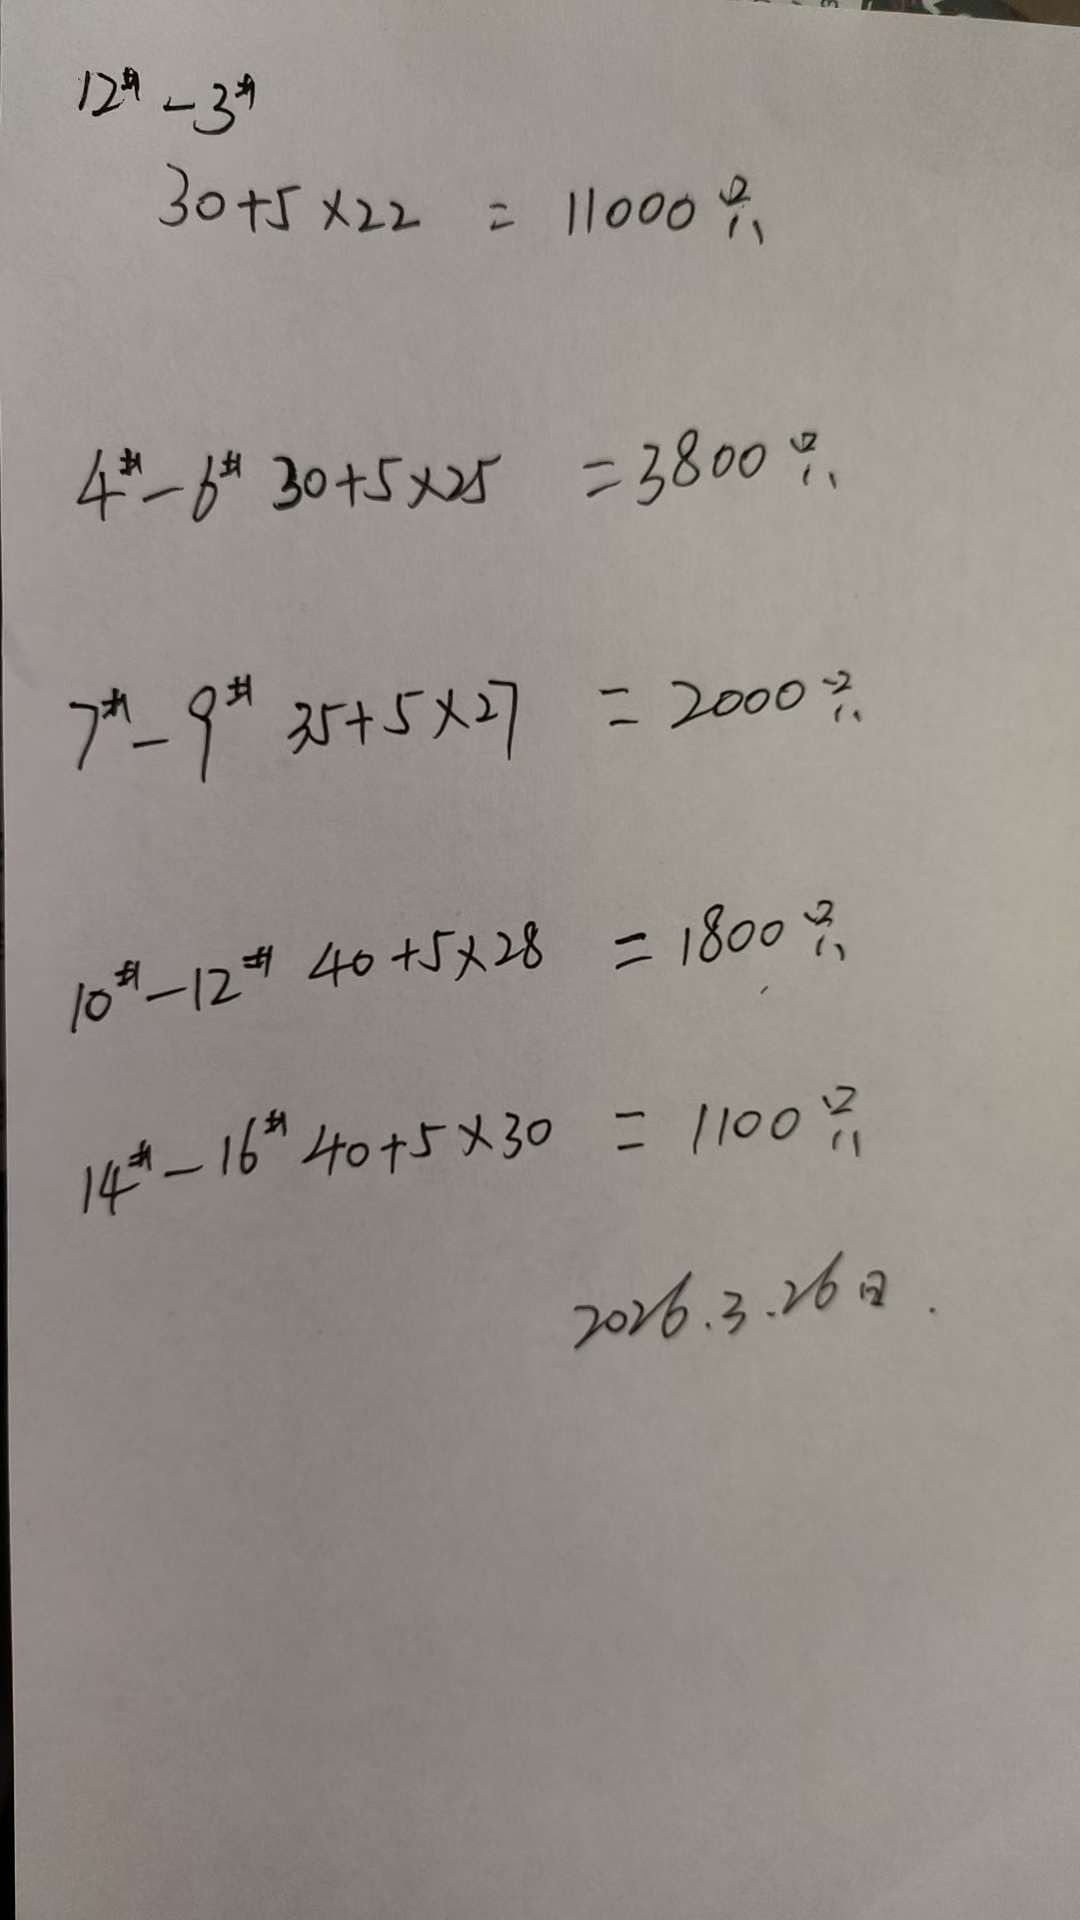 12# - 3#
30+5×22 = 11000只
4# - 6# 30+5×25 = 3800只
7# - 9# 35+5×27 = 2000只
10# - 12# 40+5×28 = 1800只
14# - 16# 40+5×30 = 1100只
2026.3.26日.